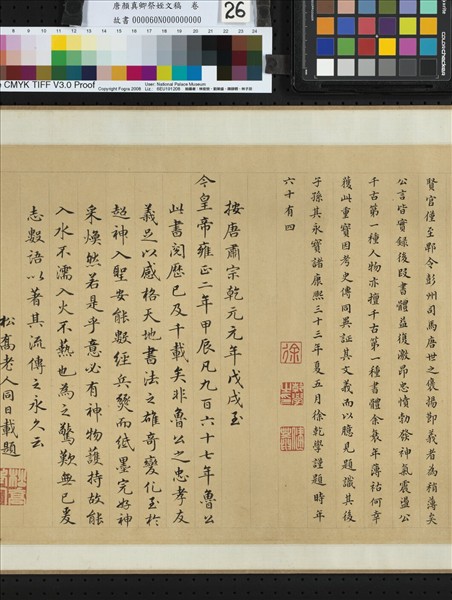 唐顏真卿祭姪文稿 卷
故書000060N000000000
26
CMYK TIFF V3.0 Proof
Copyright Fogra 2008
User: National Palace Museum
colorchecker
賢官僅至郫令彭州司馬唐世之褒揚節義者為稍薄矣
公言皆實錄後段書體益復激昂忠憤勃發神氣震盪公
千古第一種人物亦擅千古第一種書體余裒年薄祜何幸
獲此重寶因考史傳同異証其文義而以臆見題識其後
子孫其永寶諸康熙三十三年夏五月徐乾學謹題時年
六十有四
按唐肅宗乾元元年戊戌至
今皇帝雍正二年甲辰凡九百六十七年魯公
此書閱歷已及千載矣非魯公之忠孝友
義足以感格天地書法之雄奇變化至於
超神入聖安能數經兵燹而紙墨完好神
采煥然若是乎意必有神物護持故能
入水不濡入火不爇也為之驚歎無已爰
志數語以著其流傳之永久云
松喬老人同日載題